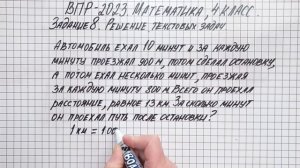 ВПР-2023 МАТЕМАТИКА, 4 КЛАСС.
ЗАДАНИЕ 8. РЕШЕНИЕ ТЕКСТОВЫХ ЗАДАЧ
АВТОМОБИЛЬ ЕХАЛ 10 МИНУТ И ЗА КАЖДУЮ
МИНУТУ ПРОЕЗЖАЛ 900 М, ПОТОМ СДЕЛАЛ ОСТАНОВКУ,
А ПОТОМ ЕХАЛ НЕСКОЛЬКО МИНУТ, ПРОЕЗЖАЯ
ЗА КАЖДУЮ МИНУТУ 800 М. ВСЕГО ОН ПРОЕХАЛ
РАССТОЯНИЕ, РАВНОЕ 13 КМ. ЗА СКОЛЬКО МИНУТ
ОН ПРОЕХАЛ ПУТЬ ПОСЛЕ ОСТАНОВКИ?
1 КМ = 100